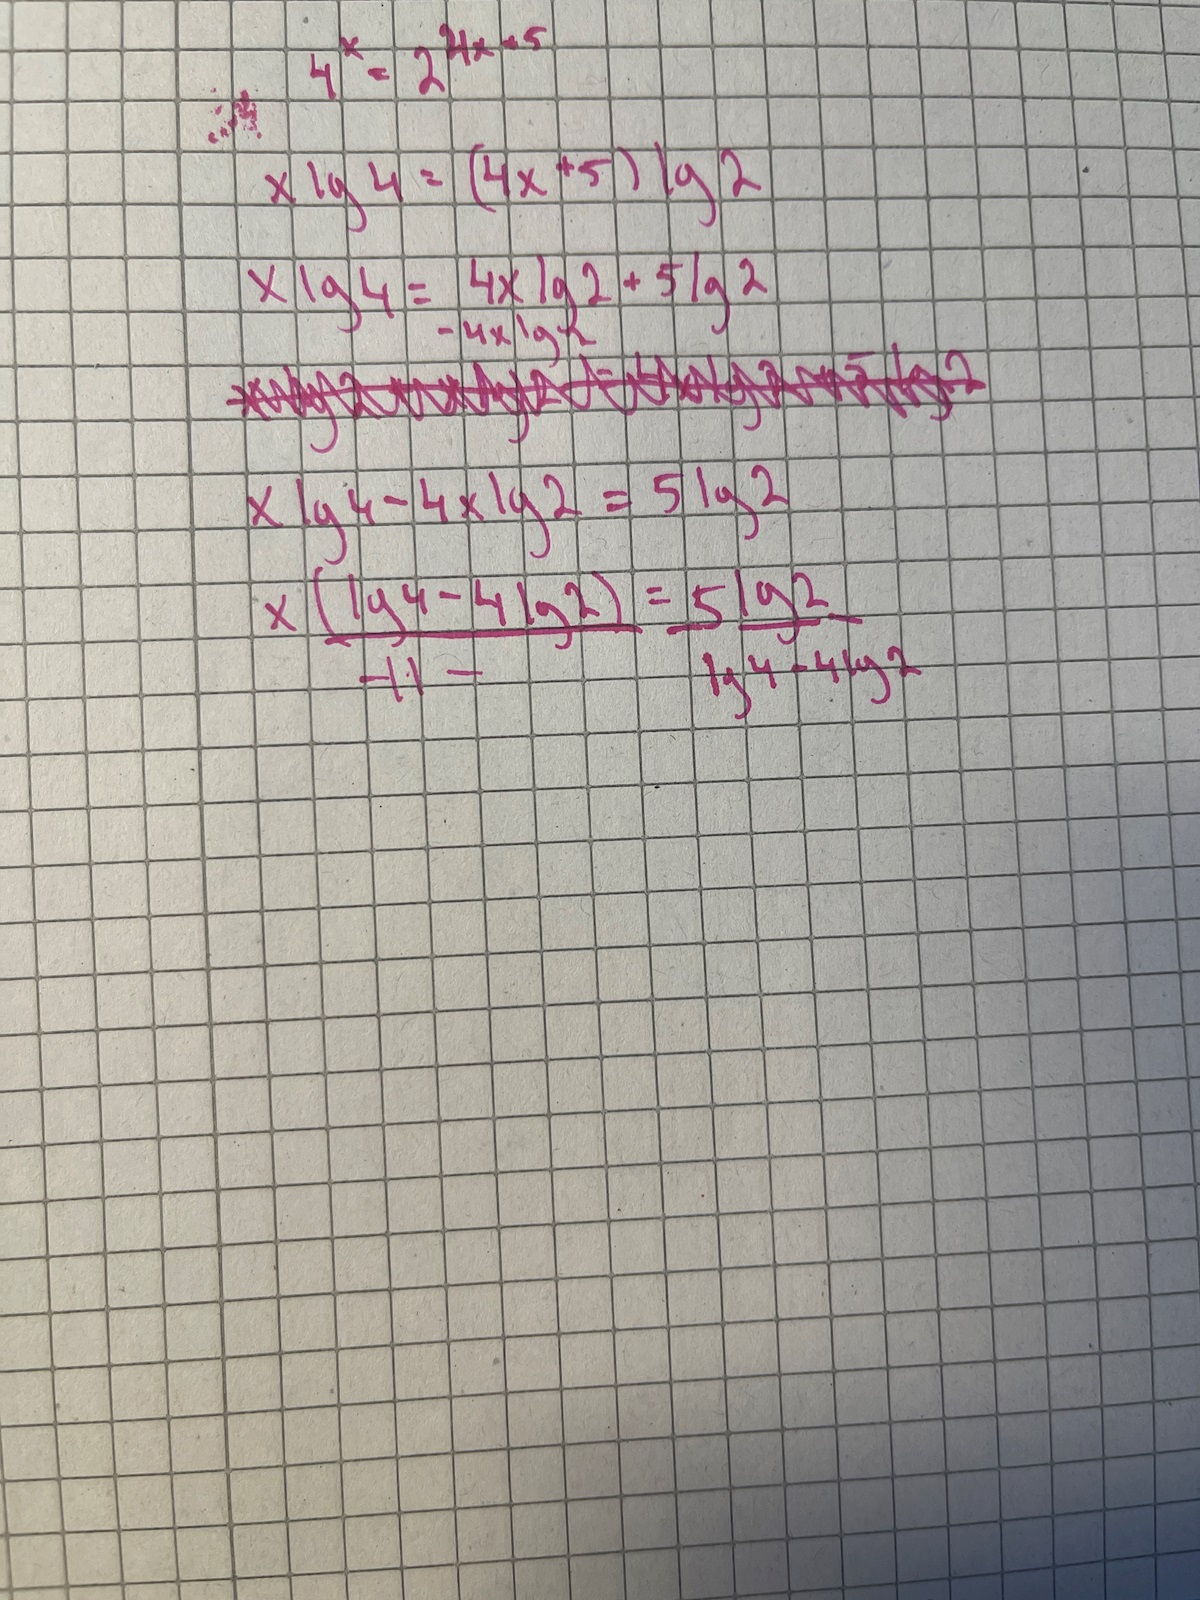 4^x = 2^{4x+5}
x lg 4 = (4x+5) lg 2
x lg 4 = 4x lg 2 + 5 lg 2
-4x lg 2
x lg 4 - 4x lg 2 = 5 lg 2
x (lg 4 - 4 lg 2) = 5 lg 2
-11- lg 4 - 4 lg 2